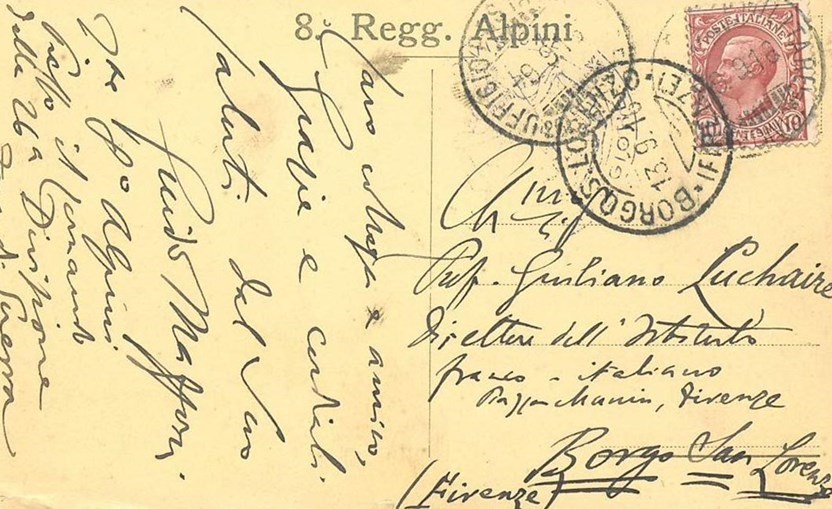 8. Regg. Alpini
Caro collega e amico,
Grazie e cordiali
saluti dal suo
Guido Maffori.
8º Alpini
Presso il Comando
della 26ª Divisione
di Guerra
POSTE ITALIANE
10
BORGO S. LORENZO (FIRENZE)
13.6.15
Prof. Giuliano Luchaire
Direttore dell'Istituto
franco-italiano
Piazza Manin, Firenze
Borgo San Lorenzo
(Firenze)